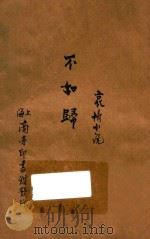 哀情小説
不如歸
上海商務印書館發行